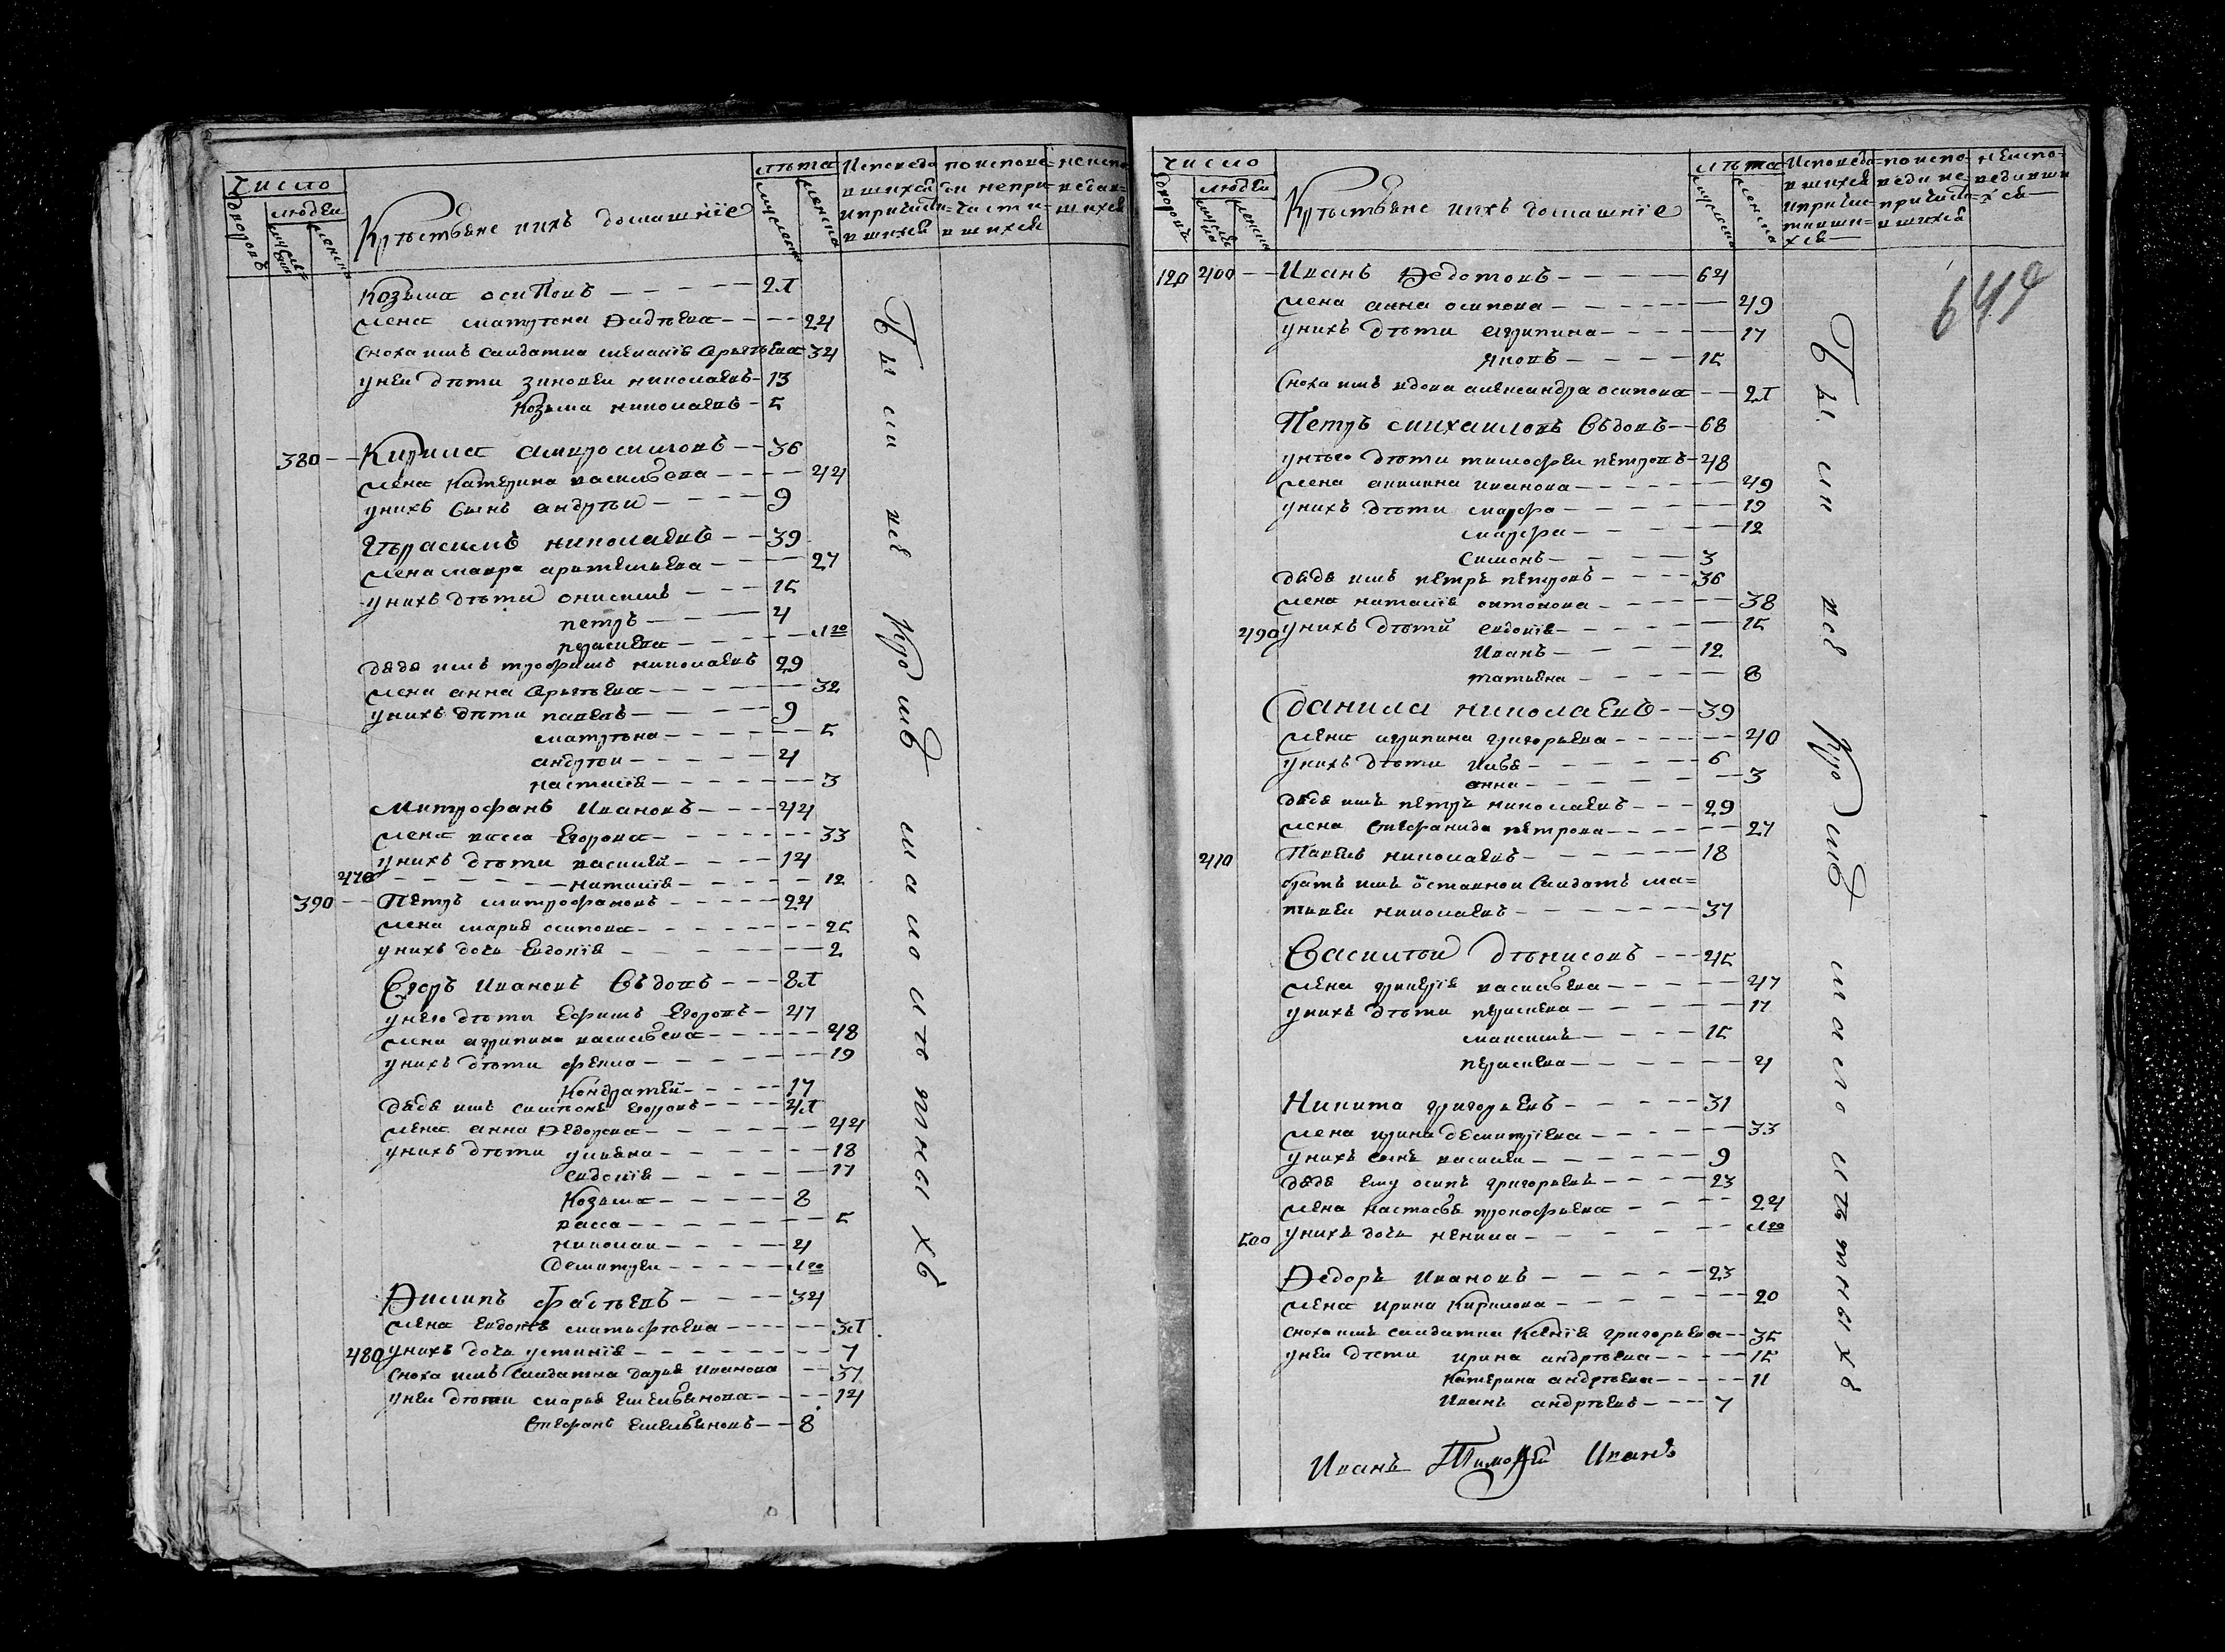 число
дворовъ
людеи
мужеска
женска
Крестьяне ихъ домашние
лѣта
мужеска
женска
Исповеда
вшихся
и причасти
вшихся
по испове
ди непри
части
вшихся
неиспо
ведав
шихся
Козьма осиповъ 25
жена матрена Ѳадѣева 24
сноха ихъ салдатка меланія Сергѣева 34
у неи дѣти зиновеи николаевъ 13
Козьма николаевъ 5
380 Кирила амвросимовъ 36
жена катерина васильева 44
у нихъ сынъ андреи 9
Герасимъ николаевъ 39
жена мавра артемьева 27
у нихъ дѣти онисимъ 15
петръ 4
парасковья
дядя имъ трофимъ николаевъ 29
жена анна Сергѣева 32
у нихъ дѣти павелъ 9
матрена 5
андреи 4
настасія 3
Митрофанъ Ивановъ 44
жена васса Егорова 33
у нихъ дѣти василей 14
470 наталія 12
390 Петръ митрофановъ 24
жена марья осипова 25
у нихъ дочь Евдокія 2
Егоръ Ивановъ вдовъ 85
у него дѣти Ефимъ Егоровъ 47
жена агрипина васильева 48
у нихъ дѣти фекла 19
Кондратей 17
дядя имъ Егоровъ 45
жена анна Ѳедорова 44
у нихъ дѣти ульяна 18
евдокія 11
Козьма 8
васса 5
николаи 4
Демитреи
Ѳилипъ Фадѣевъ 34
жена Евдокія 35
480 у нихъ дочь устинія 7
сноха имъ салдатка дарья Иванова 37
у неи дѣти марья Емельянова 14
Стефанъ Емельяновъ 8
Были все кромѣ малолѣтныхъ
число
дворовъ
людеи
мужеска
женска
Крестьяне ихъ домашние
лѣта
мужеска
женска
Исповеда
вшихся
и прича
стивши
хся
по испо
веди не
причасти
вшихся
неиспо
ведавши
хся
649
120 400 Иванъ Ѳедотовъ 64
жена анна осипова 49
у нихъ дѣти агрипина 17
яковъ 15
Сноха имъ вдова александра осипова 25
Петръ михаиловъ вдовъ 68
у него дѣти тимофеи петровъ 48
жена акилина иванова 49
у нихъ дѣти марфа 19
марфа 12
Симонъ 3
дядя имъ петръ петровъ 36
жена наталія антонова 38
490 у нихъ дѣтй евдокія 15
Иванъ 12
татьяна 8
Данила николаевъ 39
жена агрипина григорьева 40
у нихъ дѣти илья 6
анна 3
дядя имъ петръ николаевъ 29
жена стефанида петрова 27
410 Павелъ николаевъ 18
братъ имъ оставнои салдатъ ма
твеи николаевъ 37
Василеи дѣнисовъ 45
жена гликерія васильева 47
у нихъ дѣти парасковья 17
максимъ 15
парасковья 4
Никита григорьевъ 31
жена ирина демитріева 33
у нихъ сынъ василеи 9
дядя ему осипъ григорьевъ 23
жена настасья прокофьева 24
500 у нихъ дочь ненила
Ѳедоръ Ивановъ 23
жена ирина Кирилова 20
сноха имъ салдатка Ксенія григорьева 35
у неи дѣти ирина андрѣева 15
Катерина андрѣева 11
Иванъ андрѣевъ 7
Были все кромѣ малолѣтныхъ
Иванъ Тимофей Иванъ